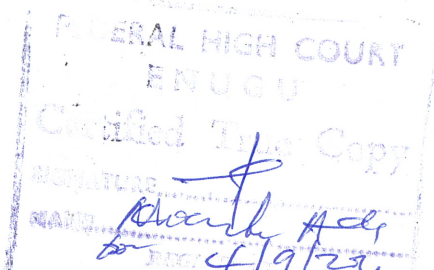 FEDERAL HIGH COURT
ENUGU
Certified True Copy
SIGNATURE
NAME
4/9/23